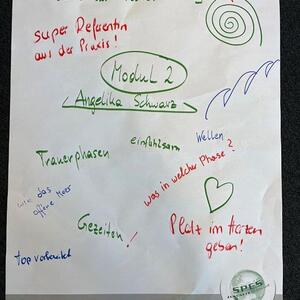 super Referentin
aus der Praxis!
Modul 2
Angelika Schwarz
einfühlsam
Wellen
Trauerphasen
was in welcher Phase?
wie das
offene Meer
Gezeiten!
Platz im Herzen
geben!
top vorbereitet
SPES